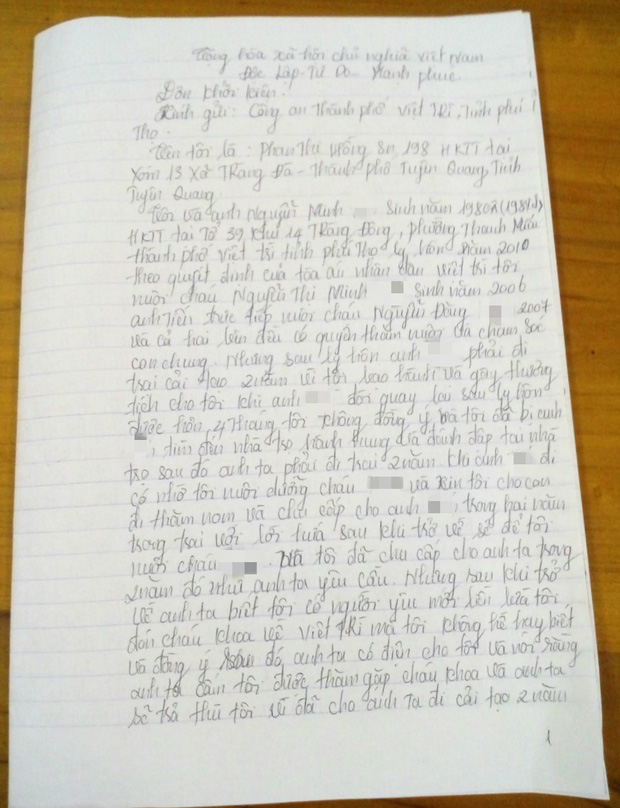 Cộng hòa xã hội chủ nghĩa việt Nam
Độc Lập - Tự Do - Hạnh phúc
Đơn khởi kiện.
Kính gửi: Công an Thành phố Việt Trì, Tỉnh phú
Thọ.
Tên tôi là: Phan Thị Hồng Sn 198 HKTT tại
Xóm 13 Xã Tràng Đà - Thành phố Tuyên Quang, Tỉnh
Tuyên Quang
Tôi và anh Nguyễn Minh Sinh năm 1980
HKTT tại Tổ 39 khu 14 Tràng Đông, phường Thanh Miếu
thành phố việt trì tỉnh phú Thọ ly hôn năm 2010
theo quyết định của tòa án nhân dân việt trì tôi
nuôi cháu Nguyễn Thị Minh sinh năm 2006
anh trực tiếp nuôi cháu Nguyễn Đông 2007
và cả hai bên đều có quyền thăm nuôi và chăm sóc
con chung. Nhưng sau ly hôn anh phải đi
trại cải tạo 2 năm vì tội bạo hành và gây thương
tích cho tôi khi anh đòi quay lại sau ly hôn
được hơn 4 tháng tôi không đồng ý và tôi đã bị anh
, tìm đến nhà trọ hành hung đánh đập tại nhà
trọ sau đó anh ta phải đi trại 2 năm khi anh đi
có nhờ tôi nuôi dưỡng cháu và xin tôi cho con
đi thăm nom và chu cấp cho anh , trong hai năm
trong trại với lời hứa sau khi trở về sẽ để tôi
nuôi cháu . Và tôi đã chu cấp cho anh ta trong
2 năm đó như anh ta yêu cầu. Nhưng sau khi trở
về anh ta biết tôi có người yêu mới lên lừa tôi
đón cháu khoa về Việt Trì mà tôi không hề hay biết
và đồng ý sau đó anh ta có điện cho tôi và nói rằng
anh ta cấm tôi được thăm gặp cháu khoa và anh ta
sẽ trả thù tôi vì đã cho anh ta đi cải tạo 2 năm
1